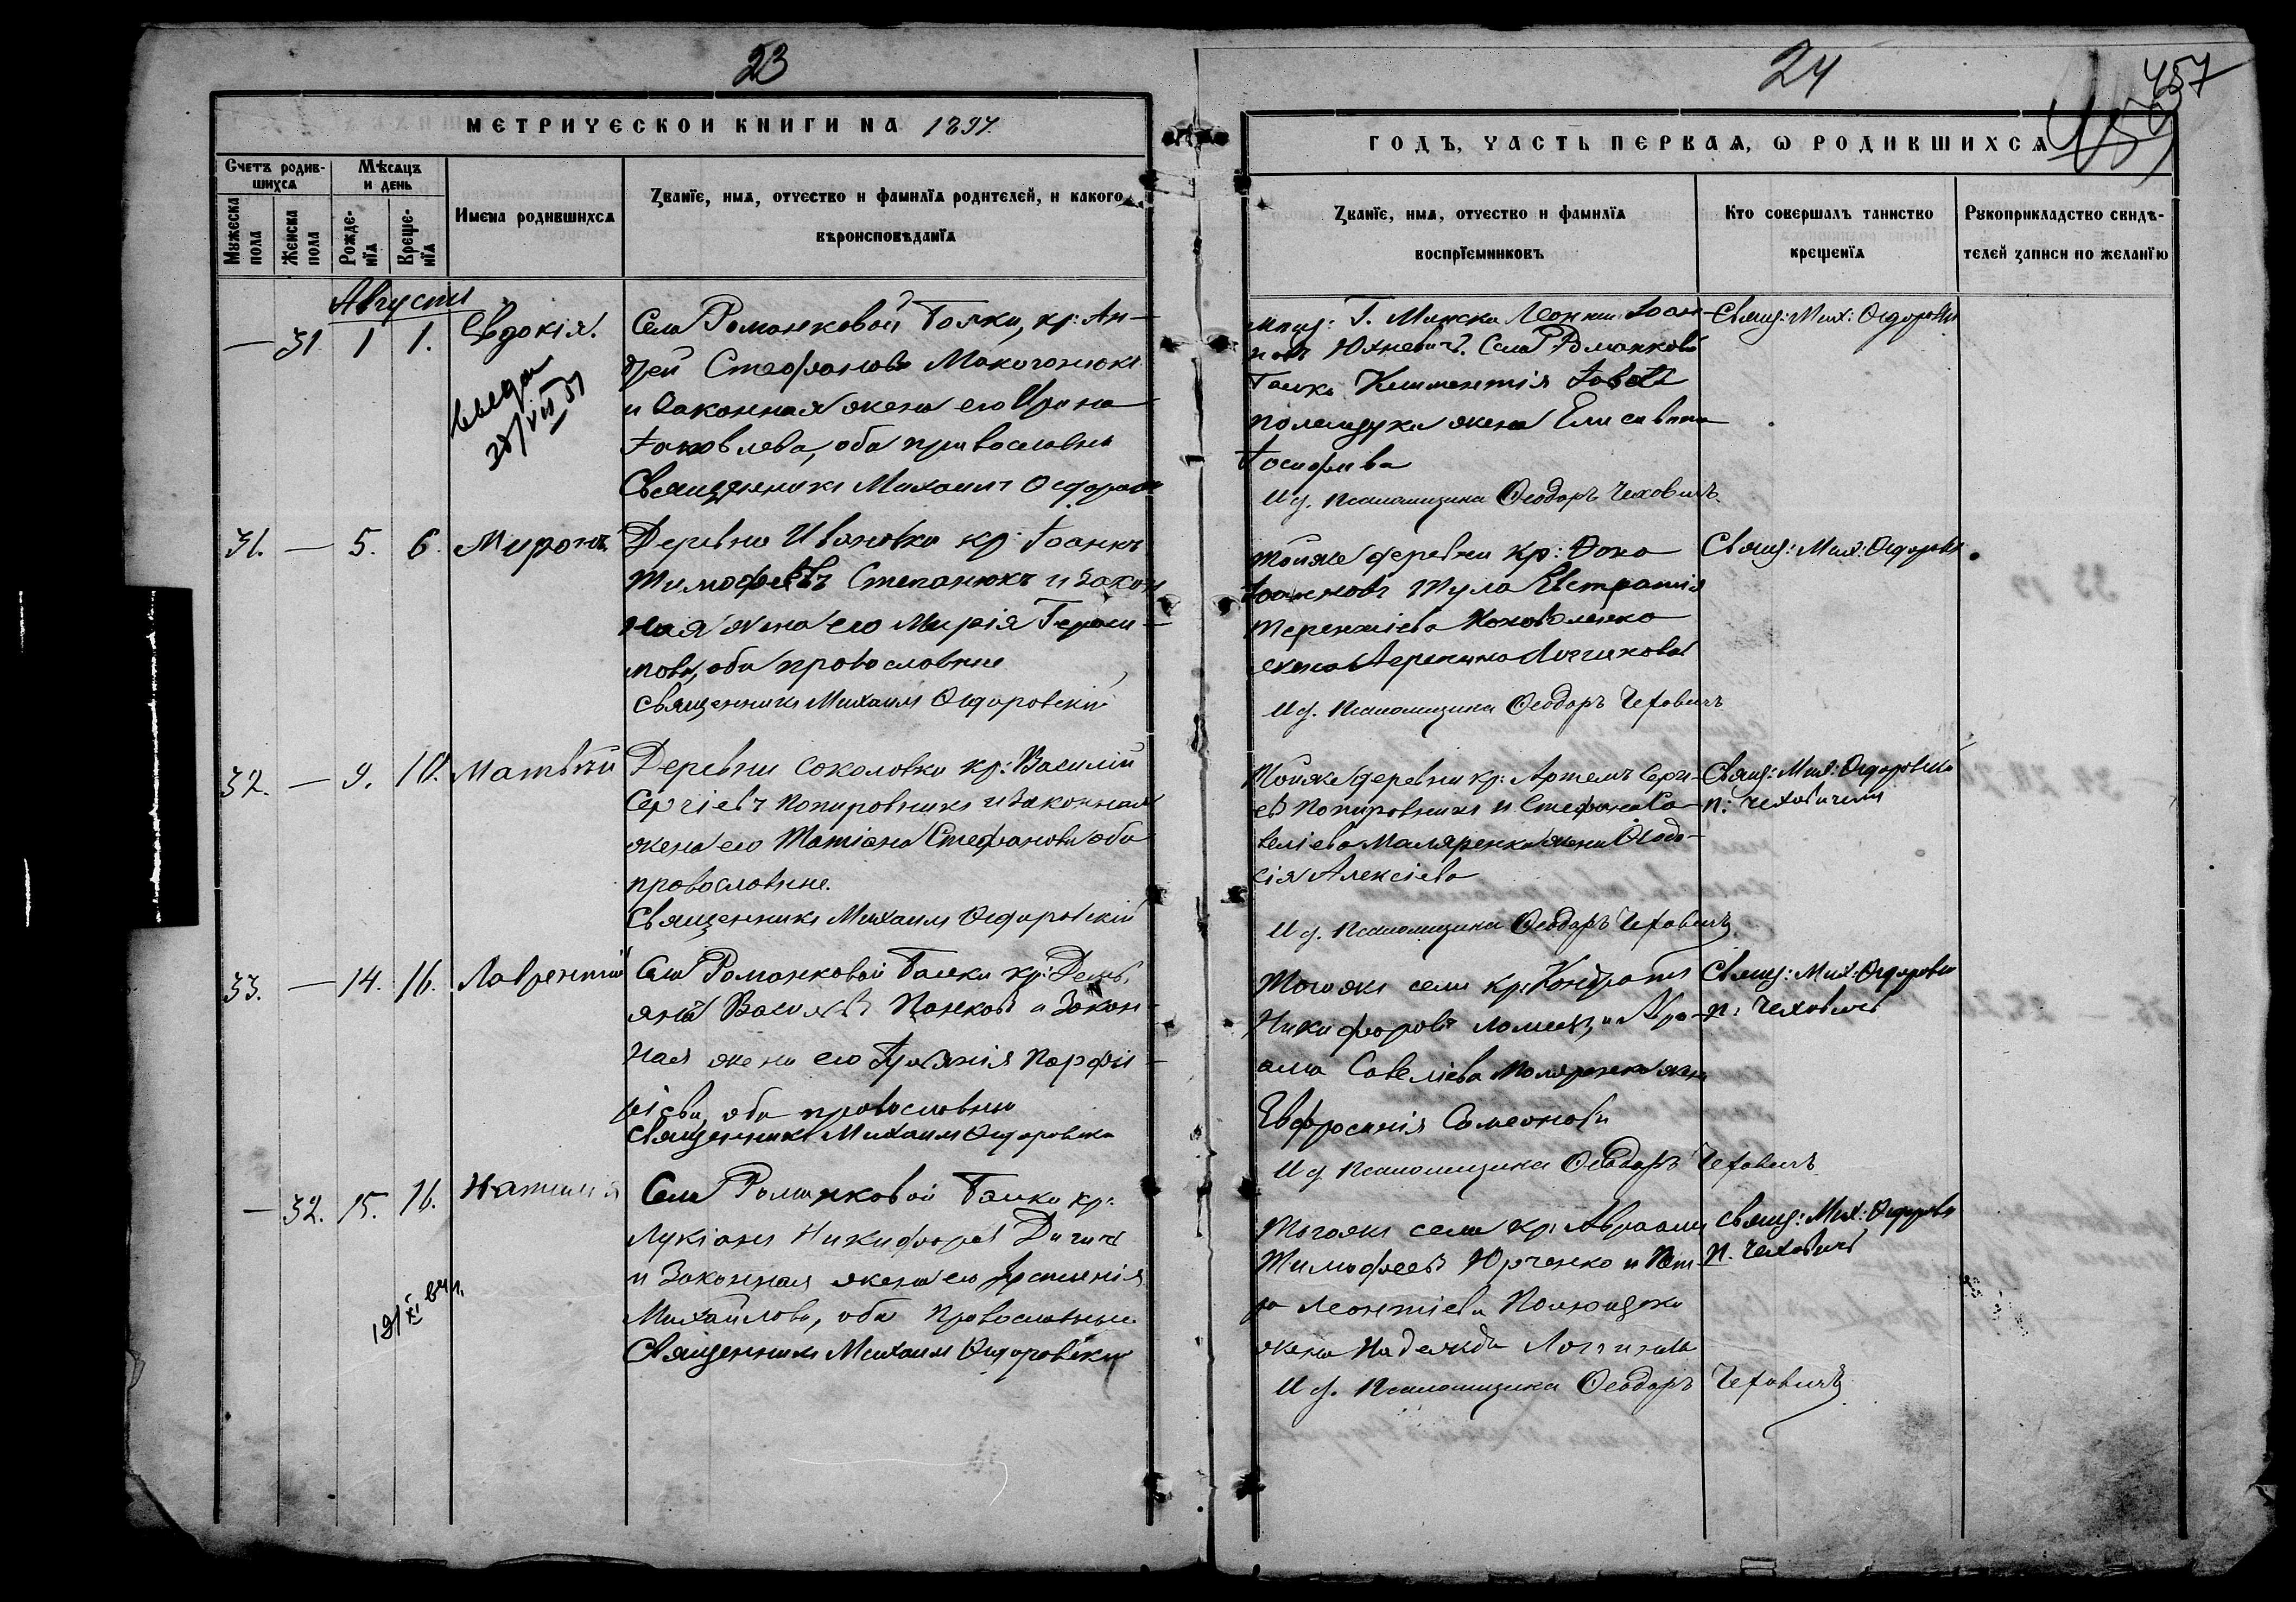 23
МЕТРИЧЕСКОЙ КНИГИ НА 1897.
Счетъ родив-
шихся
Мѣсяцъ
и день
Имена родившихся
Званїе, имя, отчество и фамилїя родителей, и какого
вѣроисповѣданїя
Мужеска
пола
Женска
пола
Рожде-
нїя
Креще-
нїя
Августъ
— 31 1 1. Евдокія.
Села Романковой Балки, кр: Ан-
дрей Стефановъ Макогонюкъ
и Законная жена его Ирина
Іаковлева, оба православны
Священникъ Михаилъ Ѳедоровс
31. — 5. 6. Миронъ.
Деревни Ивановки кр: Іоаннъ
Тимофеевъ Степанюкъ и закон
ная жена его Марія Гераси-
мова, оба православные
Священникъ Михаилъ Ѳедоровскій
32. — 9. 10. Матвѣй
Деревни Соколовки кр: Василій
Сергіевъ Попировникъ и Законная
жена его Татіана Стефанова оба
православные.
Священникъ Михаилъ Ѳедоровскій
33. — 14. 16. Лаврентій
Села Романковой Балки кр: Демь
янъ Панковъ и Закон-
ная жена его Порфи-
ріева, оба православны
Священникъ Михаилъ Ѳедоровски
— 32. 15. 16. Наталія
Села Романковой Балки кр:
Лукіанъ Никифоровъ
и Законная жена его
Михайлова, оба Православные
Священникъ Михаилъ Ѳедоровскій
24
457
ГОДЪ, ЧАСТЬ ПЕРВАЯ, Ѡ РОДИВШИХСЯ
Званїе, имя, отчество и фамилїя
воспрїемниковъ
Кто совершалъ таинство
крещенїя
Рукоприкладство свидѣ-
телей записи по желанїю
Г. Минска Іоан-
новъ Юхневичъ. Села Романковой
Балки Климентія
Полищука жена Елисавета
Іосифова
И д. Псаломщика Ѳеодоръ Чеховичъ.
Свящ: Мих: Ѳедоровск
Тойже деревни кр: Ѳома
Іоанновъ Евстратія
Терентіева Коноваленко
жена
И д. Псаломщика Ѳеодоръ Чеховичъ
Свящ: Мих: Ѳедоровск
Тойже деревни кр: Артемъ Серги-
евъ Попировникъ и Стефана Са-
веліева Маляренка жена Ѳеодо-
сія Алексіева
И д. Псаломщика Ѳеодоръ Чеховичъ.
Свящ: Мих: Ѳедоровскій
п: Чеховичемъ
Тогоже села кр: Кондратъ
Никифоровъ и Авра-
ама Савеліева Моляренка жена
Евфросинія Симеонова
И д Псаломщика Ѳеодоръ Чеховичъ
Свящ: Мих: Ѳедоровск
п: Чеховичъ
Тогоже села кр: Авраамъ
Тимофеевъ Юрченко и Пет-
ра Леонтіева
жена Надежда
И д. Псаломщика Ѳеодоръ Чеховичъ
Свящ: Мих: Ѳедоровск
п. Чеховичъ